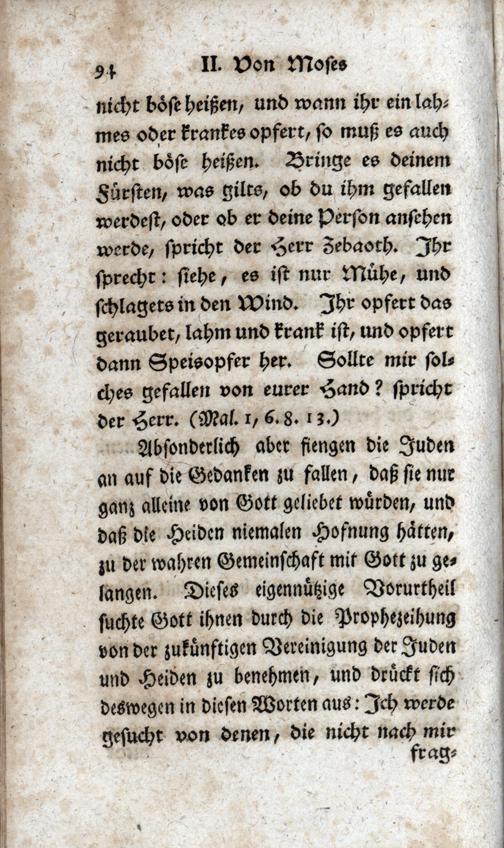 94 II. Von Moses
nicht böse heißen, und wann ihr ein lah-
mes oder krankes opfert, so muß es auch
nicht böse heißen. Bringe es deinem
Fürsten, was gilts, ob du ihm gefallen
werdest, oder ob er deine Person ansehen
werde, spricht der Herr Zebaoth. Ihr
sprecht: siehe, es ist nur Mühe, und
schlagets in den Wind. Ihr opfert das
geraubet, lahm und krank ist, und opfert
dann Speisopfer her. Sollte mir sol-
ches gefallen von eurer Hand? spricht
der Herr. (Mal. 1, 6. 8. 13.)
Absonderlich aber fiengen die Juden
an auf die Gedanken zu fallen, daß sie nur
ganz alleine von Gott geliebet würden, und
daß die Heiden niemalen Hofnung hätten,
zu der wahren Gemeinschaft mit Gott zu ge-
langen. Dieses eigennützige Vorurtheil
suchte Gott ihnen durch die Prophezeihung
von der zukünftigen Vereinigung der Juden
und Heiden zu benehmen, und drückt sich
deswegen in diesen Worten aus: Ich werde
gesucht von denen, die nicht nach mir
frag-